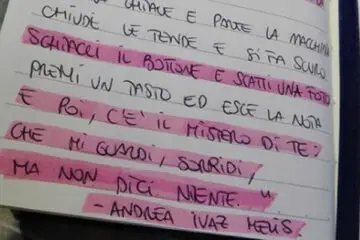 CHIAVE E PARTE LA MACCHINA
CHIUDE LE TENDE E SI FA SCURO
SCHIACCI IL BOTTONE E SCATTI UNA FOTO
PREMI UN TASTO ED ESCE LA NOTA
E POI, C'È IL MISTERO DI TE:
CHE MI GUARDI, SORRIDI,
MA NON DICI NIENTE."
- ANDREA IVAZ MELIS